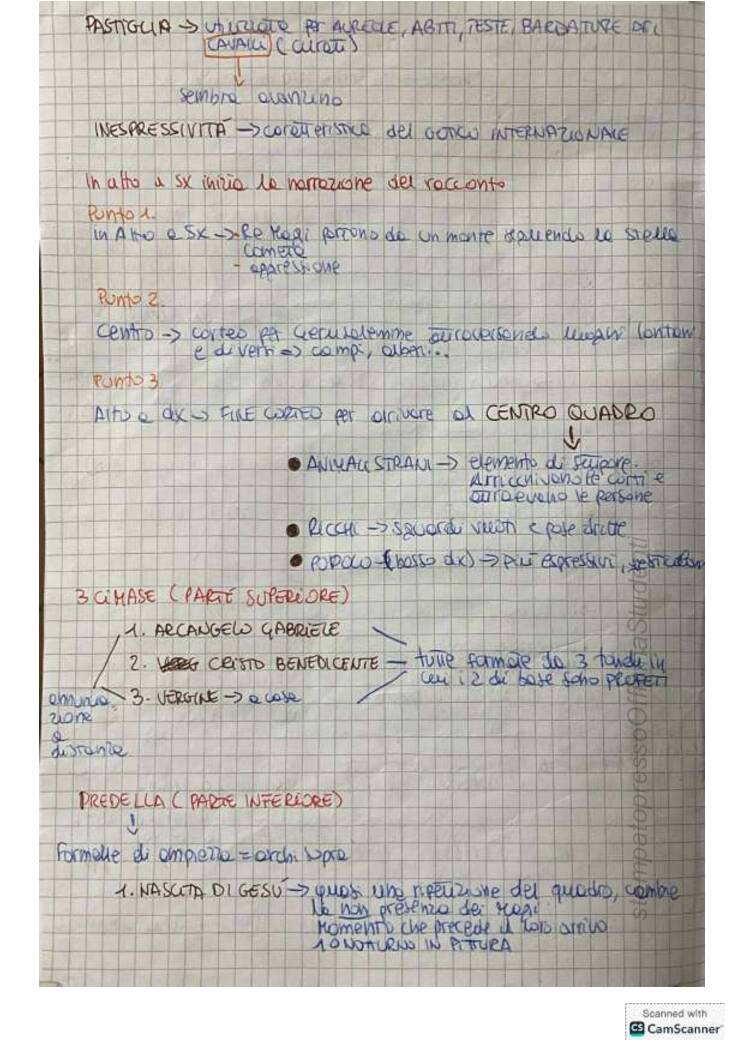 PASTIGLIA → utilizzate per AUREOLE, ABITI, TESTE, BARDATURE DEI
CAVALLI (curati)
sembra avanzino
INESPRESSIVITÀ → caratteristica del GOTICO INTERNAZIONALE
In alto a sx inizia la narrazione del racconto
Punto 1.
IN Alto a Sx → - Re Magi partono da un monte seguendo la stella
cometa
- apparizione
Punto 2.
Centro → corteo per Gerusalemme attraversando luoghi lontani
e diversi => campi, alberi...
Punto 3
Alto a dx → FINE CORTEO per arrivare al CENTRO QUADRO
● ANIMALI STRANI → elemento di stupore.
Arricchivano le corti e
attraevano le persone
● RICCHI → sguardi vuoti e pose dritte
● POPOLO (basso dx) → più espressivi,
3 CIMASE (PARTE SUPERIORE)
1. ARCANGELO GABRIELE
2. CRISTO BENEDICENTE — tutte formate da 3 tondi in
cui i 2 di base sono PROFETI
3. VERGINE → a casa
annuncia
zione
a
distanza
PREDELLA (PARTE INFERIORE)
Formelle di ampiezza = archi sopra
1. NASCITA DI GESÙ → quasi una ripetizione del quadro, cambia
la non presenza dei Magi.
Momento che precede il loro arrivo
1° NOTTURNO IN PITTURA
stampatopressoOfficinaStudenti
Scanned with
CS CamScanner